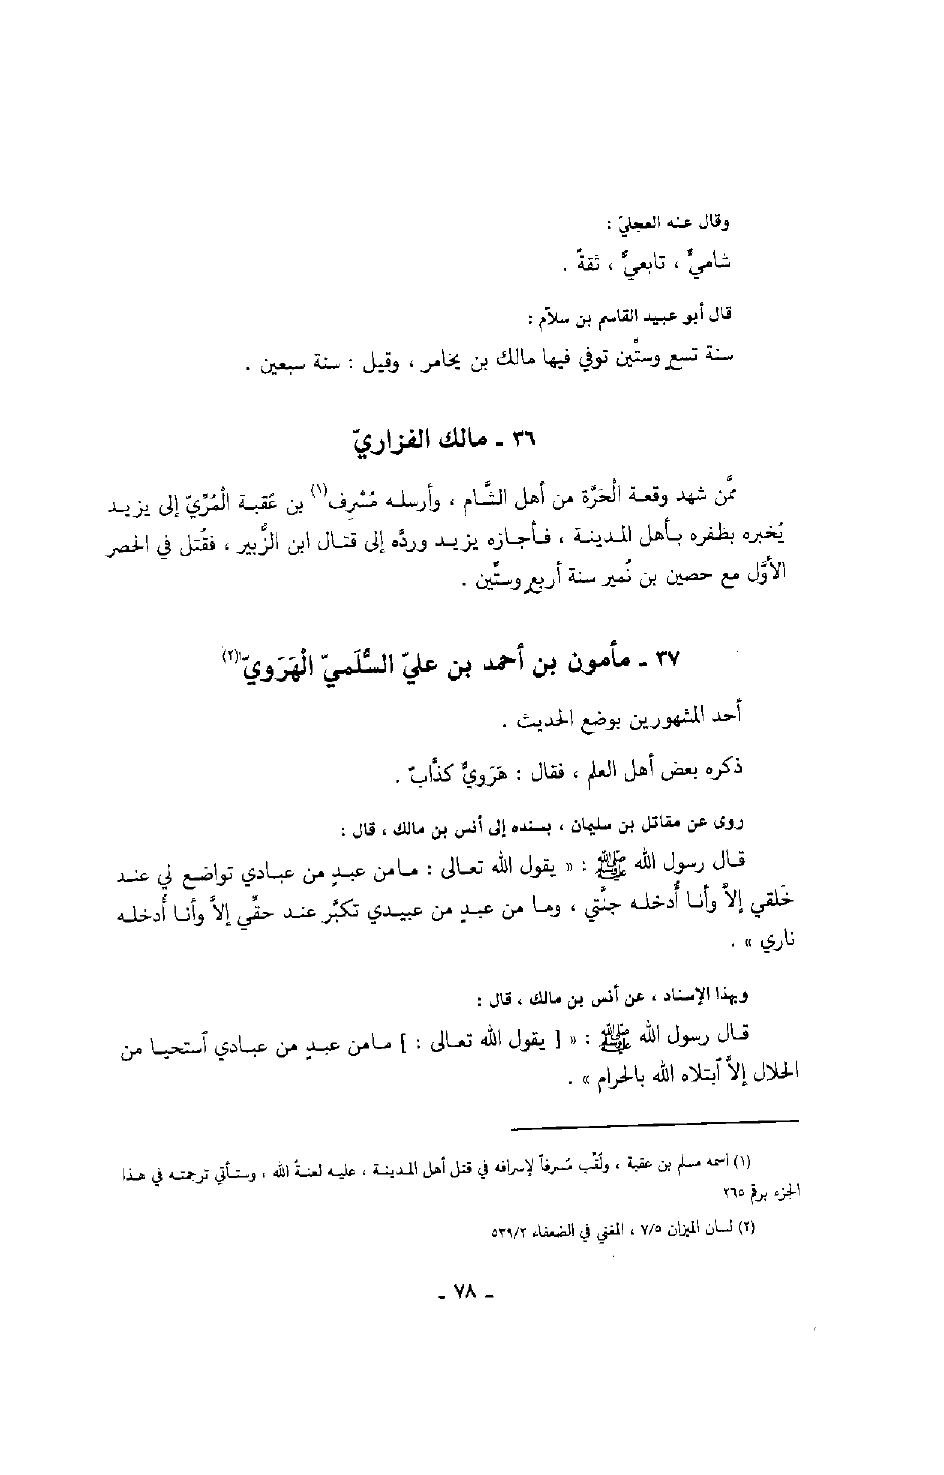 وقال عنه العجليّ :
شاميٌّ ، تابعيٌّ ، ثقةٌ .
قال أبو عبيد القاسم بن سلاّم :
سنة تسع وستِّين توفي فيها مالك بن يخامر ، وقيل : سنة سبعين .
٣٦ ـ مالك الفزاريّ
ممَّن شهد وقعة الْحَرَّة من أهل الشَّام ، وأرسله مُسْرِف(١) بن عُقبة الْمُرِّيّ إلى يزيد
يُخبره بظفره بأهل المدينة ، فأجازه يزيد وردَّه إلى قتال ابن الزُّبير ، فقُتل في الحصر
الأوَّل مع حصين بن نُمير سنة أربع وستِّين .
٣٧ ـ مأمون بن أحمد بن عليّ السُّلَميّ الْهَرَويّ(٢)
أحد المشهورين بوضع الحديث .
ذكره بعض أهل العلم ، فقال : هَرَويٌّ كذَّابٌ .
روى عن مقاتل بن سليمان ، بسنده إلى أنس بن مالك ، قال :
قال رسول الله ﷺ : « يقول الله تعالى : مامن عبدٍ من عبادي تواضع لي عند
خَلقي إلاَّ وأنا أُدخله جنَّتي ، وما من عبدٍ من عبيدي تكبَّر عند حقِّي إلاَّ وأنا أُدخله
ناري » .
وبهذا الإسناد ، عن أنس بن مالك ، قال :
قال رسول الله ﷺ : « [ يقول الله تعالى : ] مامن عبدٍ من عبادي ٱستحيا من
الحلال إلاَّ ٱبتلاه الله بالحرام » .
(١) اسمه مسلم بن عقبة ، ولُقِّب مُسرفاً لإسرافه في قتل أهل المدينة ، عليه لعنةُ الله ، وستأتي ترجمته في هذا
الجزء برقم ٢٦٥
(٢) لسان الميزان ٧/٥ ، المغني في الضعفاء ٥٣٩/٢
ـ ٧٨ ـ